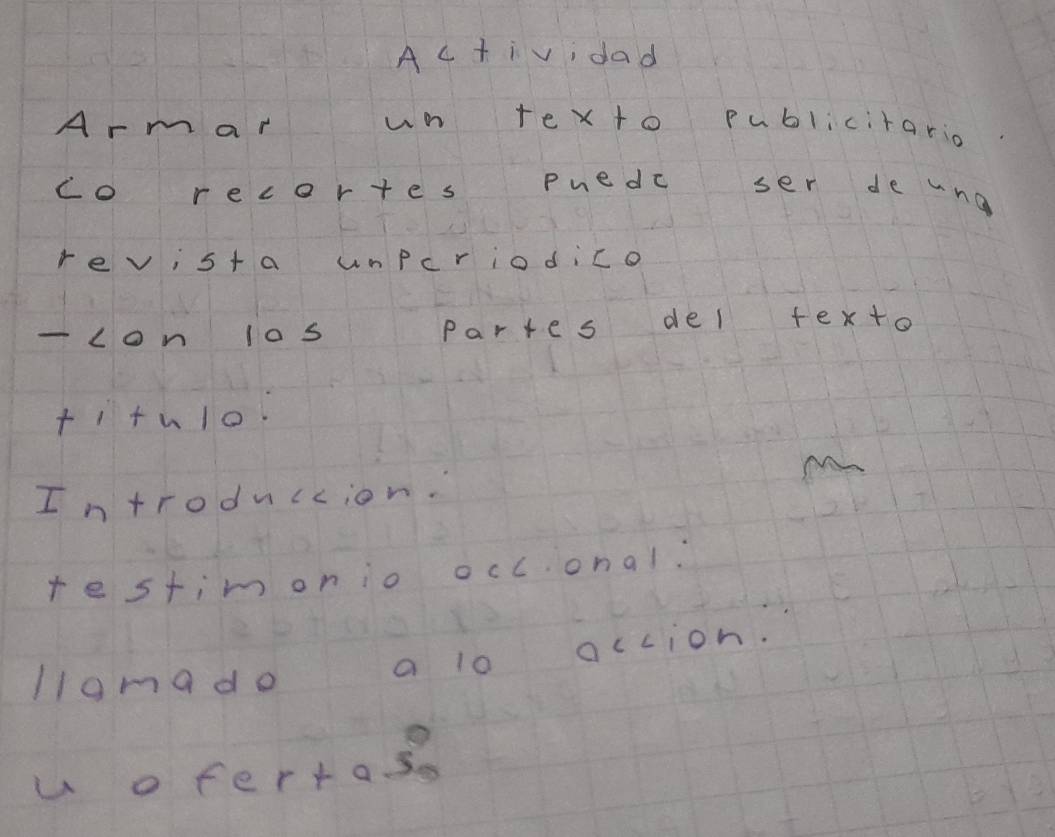 Actividad
Armar un texto publicitario.
co recortes puede ser de una
revista un periodico
- con los partes del texto
titulo:
Introduccion:
testimonio occional:
llamado a lo accion:
u ofertas: